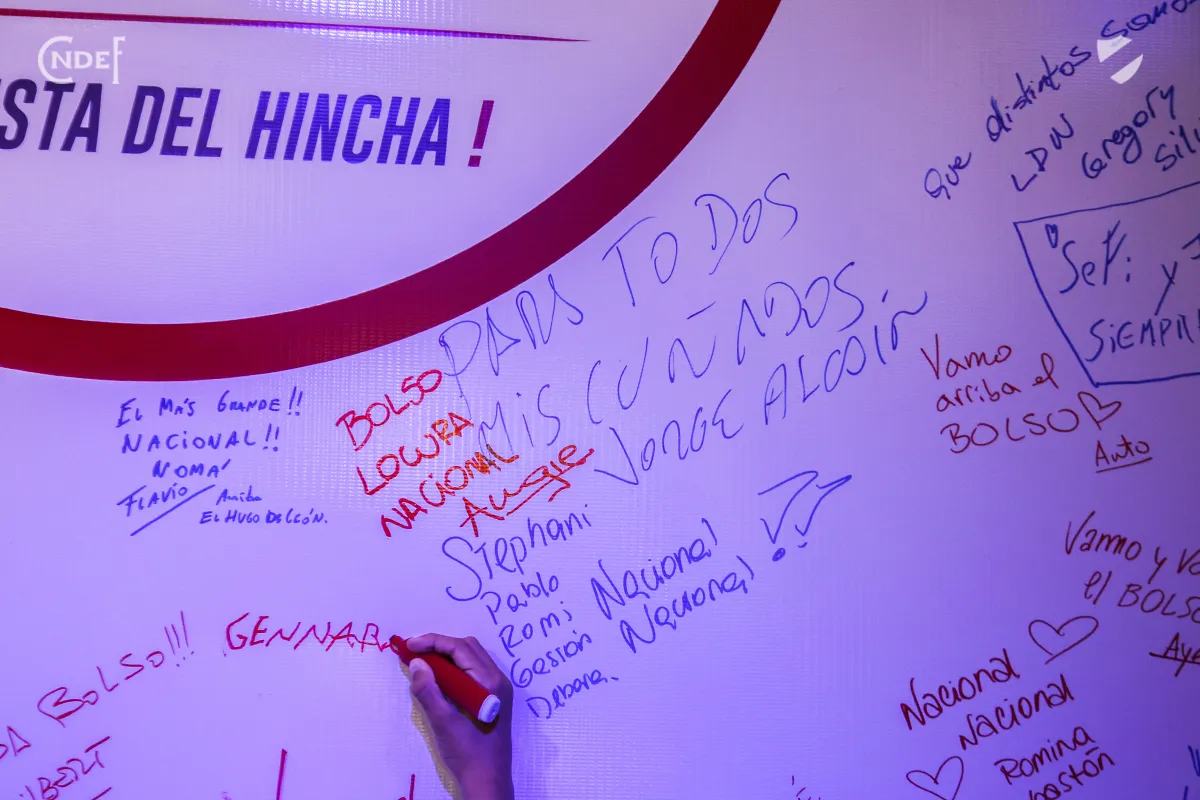 CNDEF
STA DEL HINCHA!
Que distintos somos
LDN
Gregory
Sil
Sefi
y
SIEMPR
PARA TODOS
MIS CUÑADOS
JORGE ALCOIN
Vamo
arriba el
BOLSO
Auto
EL MÁS GRANDE!!
NACIONAL!!
NOMÁ
FLAVIO
Arriba
EL HUGO DE LEÓN.
BOLSO
LOCURA
NACIONAL
Angie
Stephani
Pablo
Romi
Gestión
Debora.
Nacional
Nacional!!
Vamo y Va
el BOLSO
Aye
GENNAR
DA BOLSO!!!
ILBERT
Nacional
Nacional
Romina
bastón